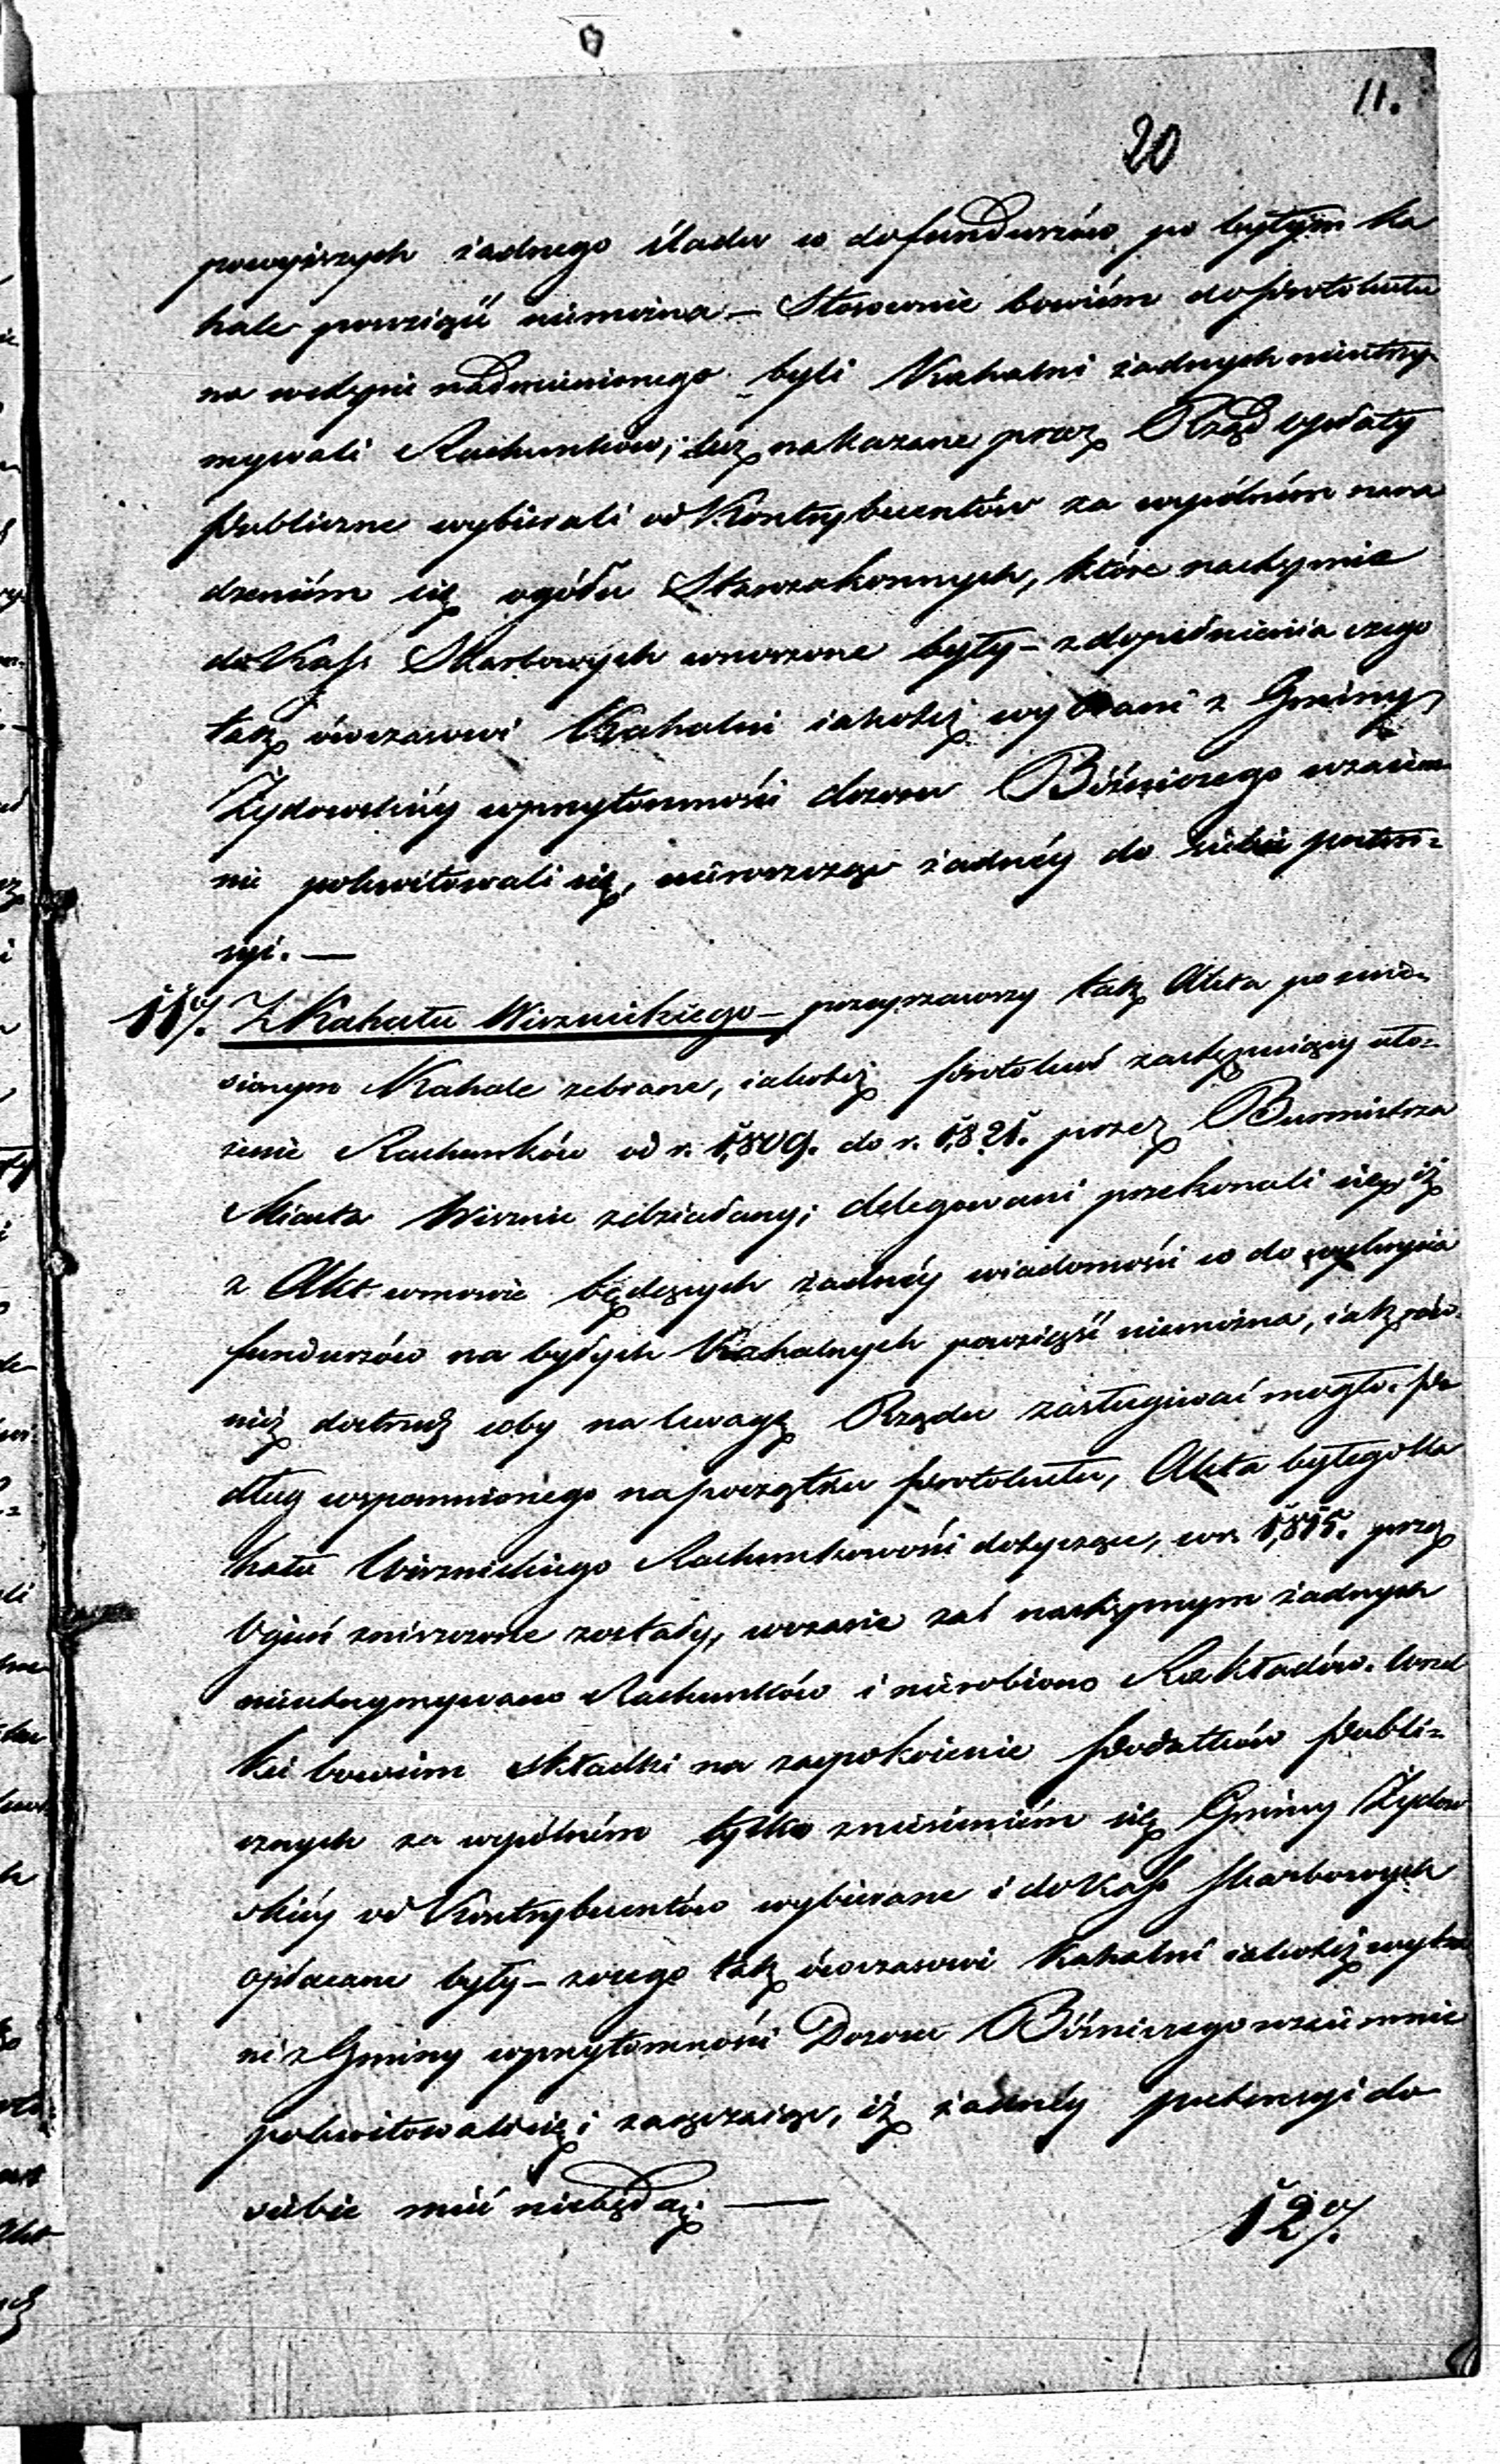 11.
20
powyższych żadnego śladu co do funduszów po byłym Ka
hale powziąść niemożna – Stosownie bowiem do protokułu
na wstępie nadmienionego byli Kahalni żadnych nieutrzy-
mywali Rachunków; lecz nakazane przez Rząd opłaty
Publiczne wybierali od Kontrybuentów za wspólném nara
dzeniém się ogółu Starozakonnych, które następnie
do Kass Skarbowych wnoszone były – z dopełnienia czego
tak ówczasowi Kahalni iakoteż wybrani z Gminy
Żydowskiéy w przytomności dozoru Bóżniczego wzaiem-
nie pokwitowali się, nieroszcząc żadnéy do siebie preten=
syi. —
11o/. Z Kahału Wiznickiego – przeyrzawszy tak Akta po znie-
sionym Kahale zebrane, iakoteż protokuł zastępuiący uło=
żenie Rachunków od r. 1809. do r. 1821. przez Burmistrza
Miasta Wiznie zdziałany; delegowani przekonali się, iż
z Akt w mowie będących żadnéy wiadomości co do użycia
funduszów na byłych Kahalnych powziąść niemożna, iak rów-
nież dostrzedz coby na uwagę Rządu zasługiwać mogło. Po
dług wspomnionego na początku protokułu, Akta byłego Ka
hału Wiznickiego Rachunkowości dotyczące, w r. 1815. przez
Ogień zniszczone zostały, w czasie zaś następnym żadnych
nieutrzymywano Rachunków i nierobiono Rozkładów. Wszel
kie bowiem składki na zaspokoienie Podatków Publi=
cznych za wspólném tylko zniesieniém się Gminy Żydow
skiéy od Kontrybuentów wybierane i do Kass Skarbowych
opłacane były – z czego tak ówczasowi Kahalni iakoteż wybra
ni z Gminy w przytomności Dozoru Bóżniczego wzaiemnie
pokwitowali się i zaręczaiąc, iż żadnéy pretensyi do
siebie mieć niebędą. —
12o/.